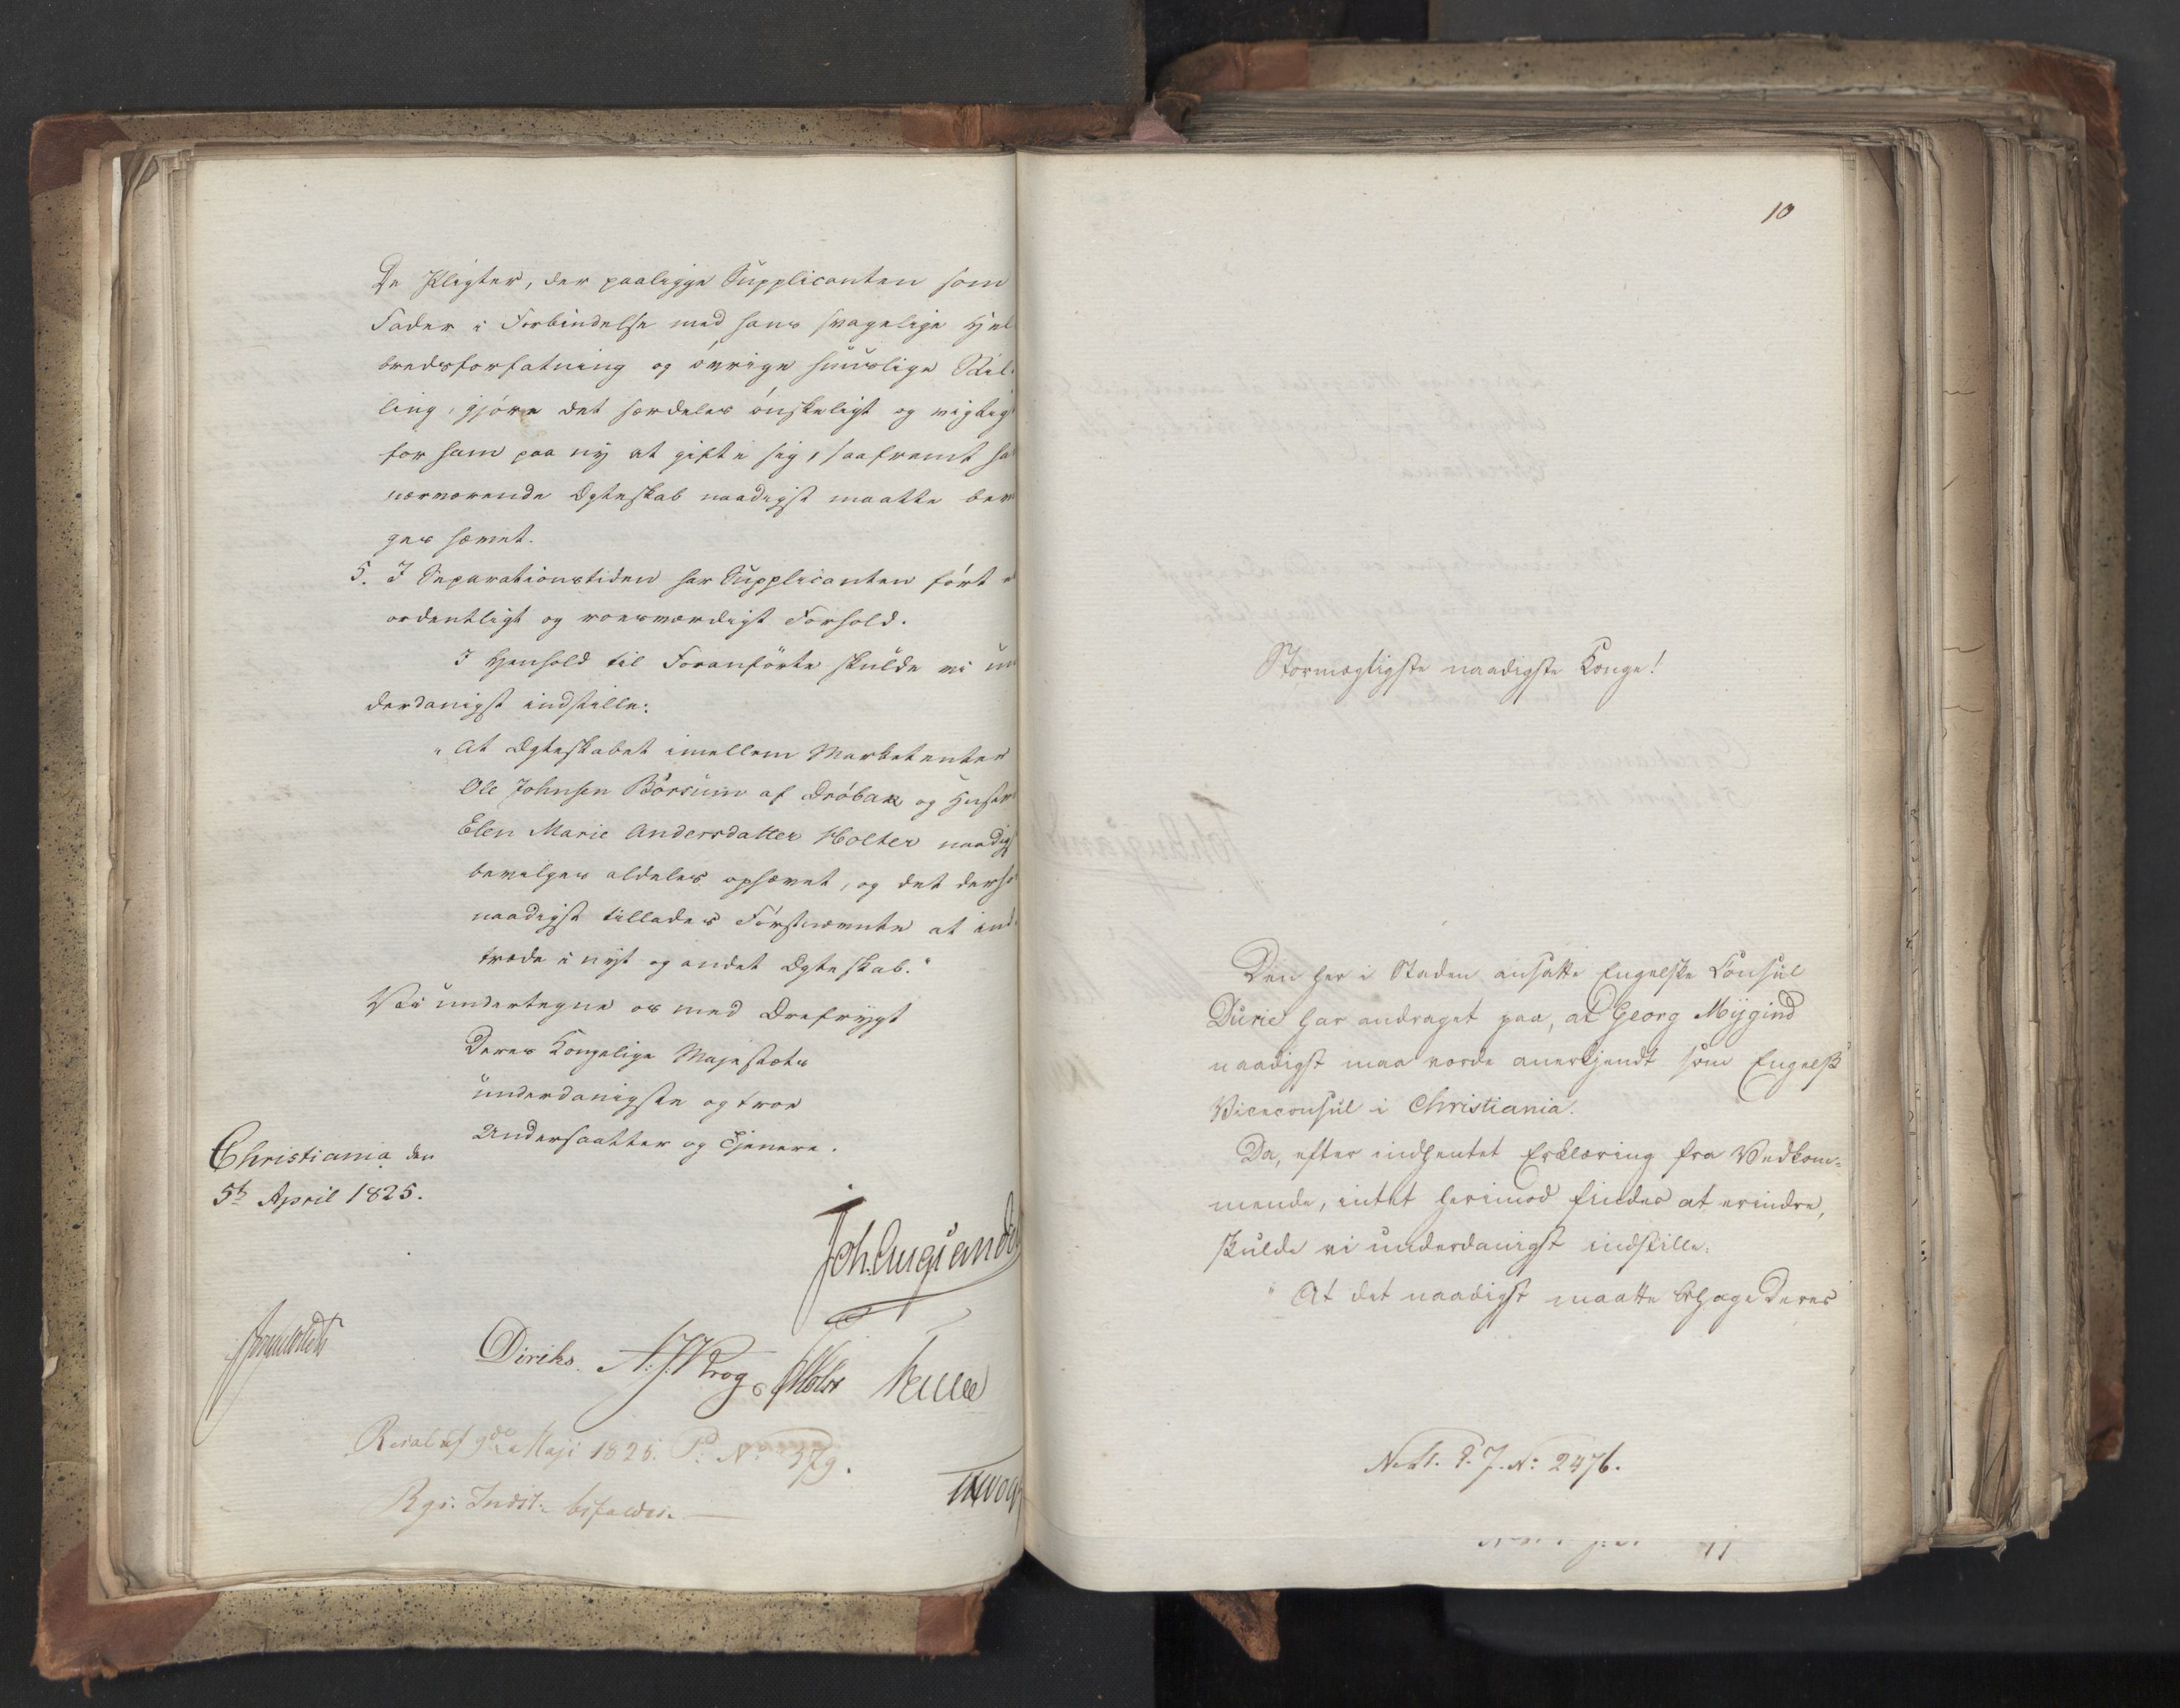 De Pligter, der paaligge Supplicanten som
Fader i Forbindelse med hans svagelige Hel
bredsforfatning og övrige huuslige Stil-
ling, gjöre det særdeles önskeligt og vigtigt
for ham paa ny at gifte sig, saafremt ha
nærværende Ægteskab naadigst maatte bev
ges hævet.
5. I Separationstiden har Supplicanten fört e
ordentligt og roesværdigt Forhold.
I Henhold til Foranförte skulde vi un
derdanigst indstille:
"At Ægteskabet imellem Marketenter
Ole Johnsen Börsum af Dröbak og Hustru
Elen Marie Andersdatter Holter naadigst
bevilges aldeles ophævet, og det derho
naadigst tillades Förstnævnte at ind-
træde i nyt og andet Ægteskab."
Vi undertegne os med Ærefrygt
Deres Kongelige Majestæts
underdanigste og troe
Undersaatter og Tjenere.
Christiania den
5te April 1825.
Diriks.
Resol. af 9de Maji 1825. P. No 379.
Rgs. Indst. bifaldes.
10
Stormægtigste naadigste Konge!
Den her i Staden ansatte Engelske Consul
Durie har andraget paa, at Georg Mygind
naadigst maa vorde anerkjendt som Engelsk
Viceconsul i Christiania.
Da, efter indhentet Erklæring fra Vedkom-
mende, intet herimod findes at erindre,
skulde vi underdanigst indstille:
"At det naadigst maatte behage Deres
J. No 2476.